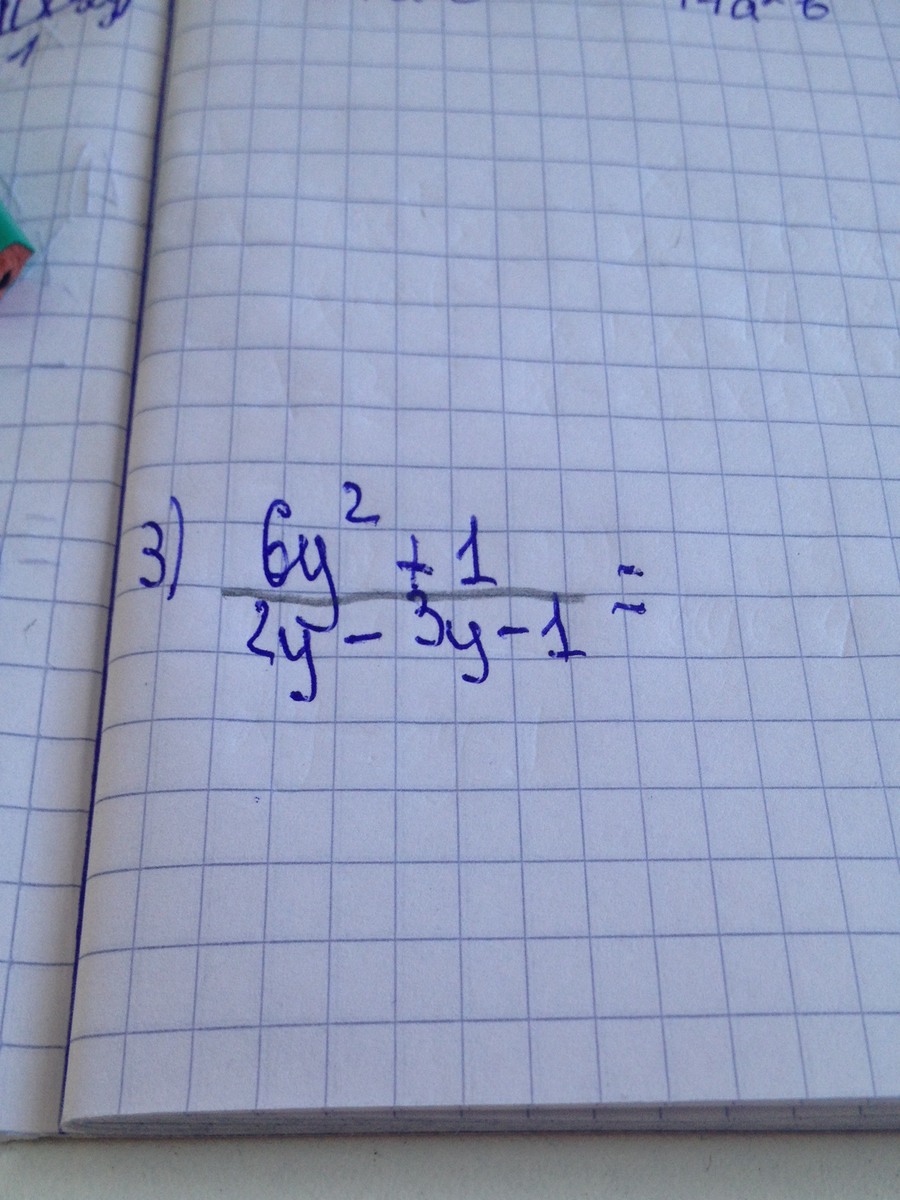 1
3) 6y² + 1
2y - 3y - 1 =